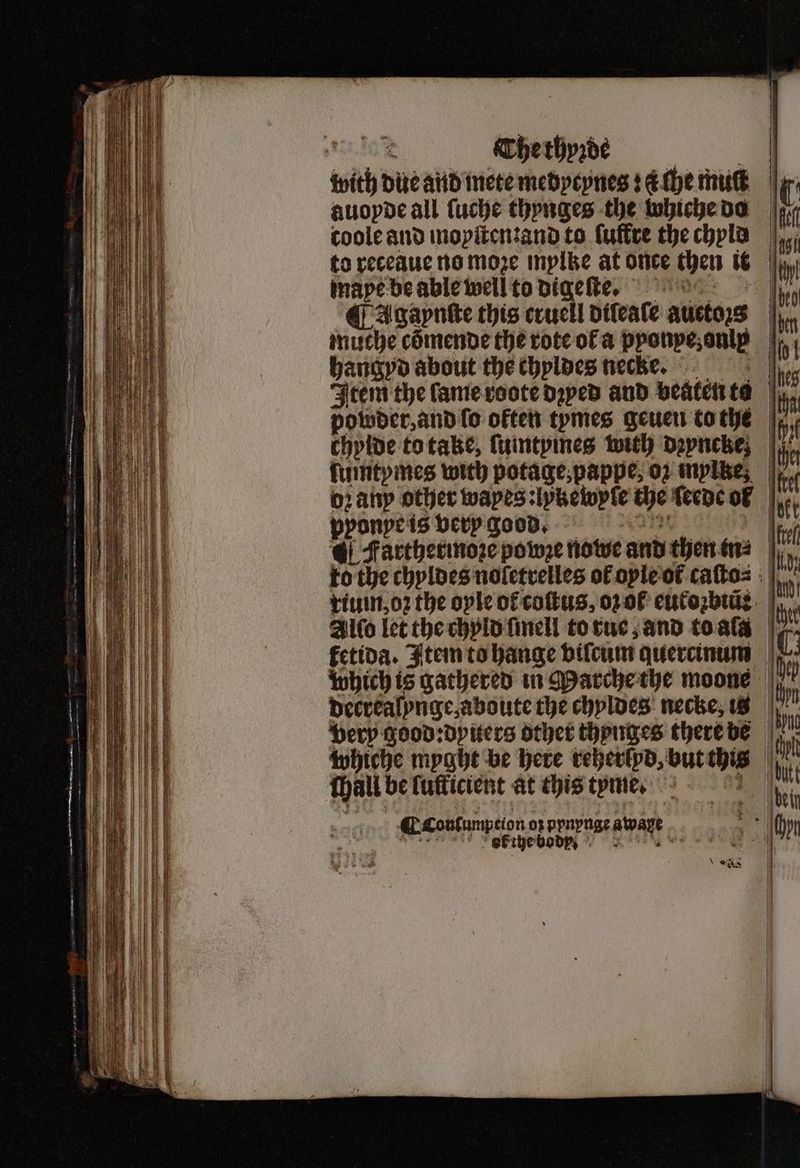 The thyrde
with due and mete medycynes : & she must
auoyde all suche thynges the whiche do
coole and moysten:and to suffre the chyld
to receaue no more mylke at once then it
maye be able well to digeste.
¶ Agaynste this cruell disease auctors
muche cõmende the rote of a pyonye,only
hangyd about the chyldes necke.
Item the same roote dryed and beaten to
powder,and so often tymes geuen to the
chylde to take, sumtymes with dryncke,
sumtymes with potage,pappe, or mylke,
or any other wayes:lykewyse the seede of
pyonye is very good.
¶ Farthermore powre nowe and then in-
to the chyldes nosetrelles of oyle of casto-
rium,or the oyle of costus, or of euforbiũ:
Also let the chyld smell to rue, and to asa
fetida. Item to hange viscum quercinum
which is gathered in Marche the moone
decrealynge,aboute the chyldes necke, is
very good:dyuers other thynges there be
whiche myght be here rehersyd, but this
shall be sufficient at this tyme.
¶ Consumption or pynynge awaye
of the body.